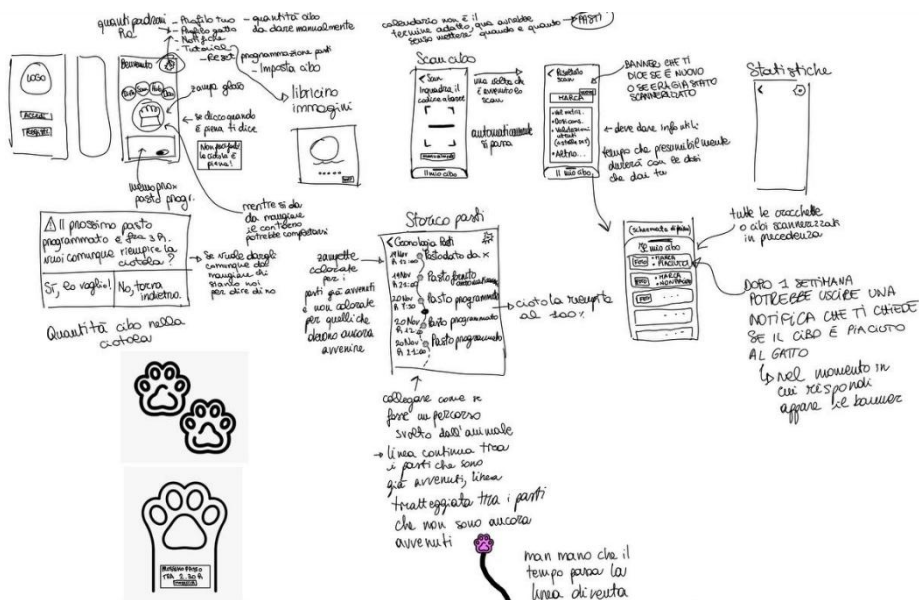 quanti padroni
ha
- Profilo tuo
- Profilo gatto
- Notifiche
- Tutorial
- Reset/programmazione pasti
- Imposta cibo
- quantità cibo
da dare manualmente
LOGO
ACCEDI
REGISTRATI
Benvenuto
zampa gatto
libricino
immagini
se clicco quando
è piena ti dice
Non puoi farlo
la ciotola è
piena!
mentre si dà
da mangiare
il contorno
potrebbe completarsi
⚠ Il prossimo pasto
programmato è fra 3 h.
vuoi comunque riempire la
ciotola?
Sì, lo voglio!
No, torna
indietro.
Se vuole dargli
comunque da
mangiare gli
diamo noi
per dire di no
Quantità cibo nella
ciotola
TRA 2.30 h
calendario non è il
termine adatto, qua avrebbe
senso mettere quando e quanto → PASTI
Scan cibo
< Scan
Inquadra il
codice a barre
Il mio cibo
una volta che
è avvenuto lo
scan
automaticamente
si passa
< Risultato
scan
MARCA
• Val. nutriz.
• Dosi cons.
• Valutazioni
utenti
(a stelle su 5)
• Altro...
Il mio cibo
BANNER CHE TI
DICE SE È NUOVO
O SE ERA GIÀ STATO
SCANNERIZZATO
← deve dare info utili
tempo che presumibilmente
durerà con le dosi
che dai tu
Statistiche
Il mio cibo
FOTO • MARCA
• PIACIUTO
FOTO • MARCA
• NON PIACIUTO
FOTO
tutte le crocchette
o cibi scannerizzati
in precedenza
DOPO 1 SETTIMANA
POTREBBE USCIRE UNA
NOTIFICA CHE TI CHIEDE
SE IL CIBO È PIACIUTO
AL GATTO
↳ nel momento in
cui rispondi
appare il banner
Storico pasti
< Cronologia Pasti
19 Nov
h 12:00
Pasto dato da x
19 Nov
h 21:00
Pasto finito
20 Nov
h 7:30
Pasto programmato
20 Nov
Pasto programmato
20 Nov
h 21:00
Pasto programmato
zampette
colorate
per i
pasti già avvenuti
e non colorate
per quelli che
devono ancora
avvenire
ciotola riempita
al 100%
collegare come se
fosse un percorso
svolto dall'animale
→ linea continua tra
i pasti che sono
già avvenuti, linea
tratteggiata tra i pasti
che non sono ancora
avvenuti
man mano che il
tempo passa la
linea diventa